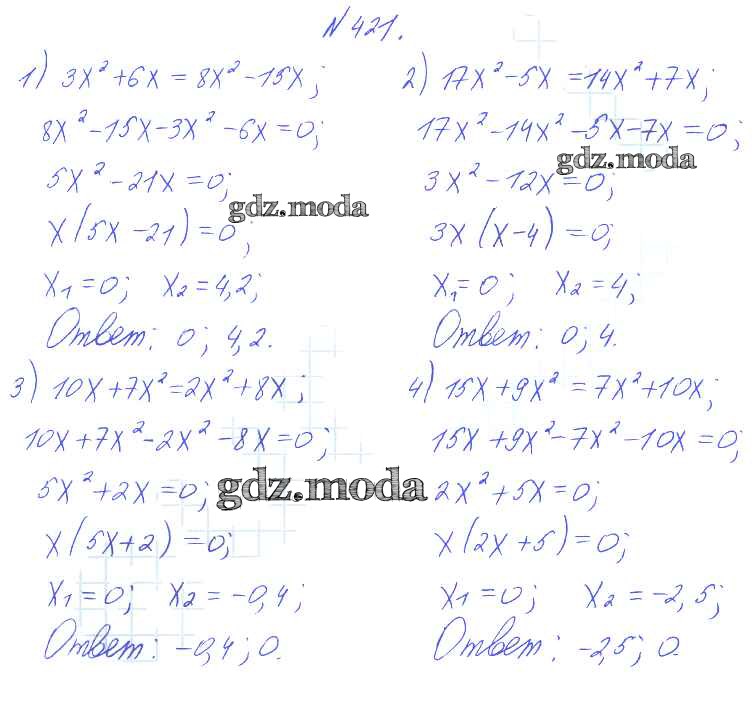 № 421.
1) 3x² + 6x = 8x² - 15x;
8x² - 15x - 3x² - 6x = 0;
5x² - 21x = 0;
gdz.moda
x(5x - 21) = 0;
x₁ = 0; x₂ = 4,2;
Ответ: 0; 4,2.
2) 17x² - 5x = 14x² + 7x;
17x² - 14x² - 5x - 7x = 0;
gdz.moda
3x² - 12x = 0;
3x(x - 4) = 0;
x₁ = 0; x₂ = 4;
Ответ: 0; 4.
3) 10x + 7x² = 2x² + 8x;
10x + 7x² - 2x² - 8x = 0;
5x² + 2x = 0;
gdz.moda
x(5x + 2) = 0;
x₁ = 0; x₂ = -0,4;
Ответ: -0,4; 0.
4) 15x + 9x² = 7x² + 10x;
15x + 9x² - 7x² - 10x = 0;
2x² + 5x = 0;
x(2x + 5) = 0;
x₁ = 0; x₂ = -2,5;
Ответ: -2,5; 0.